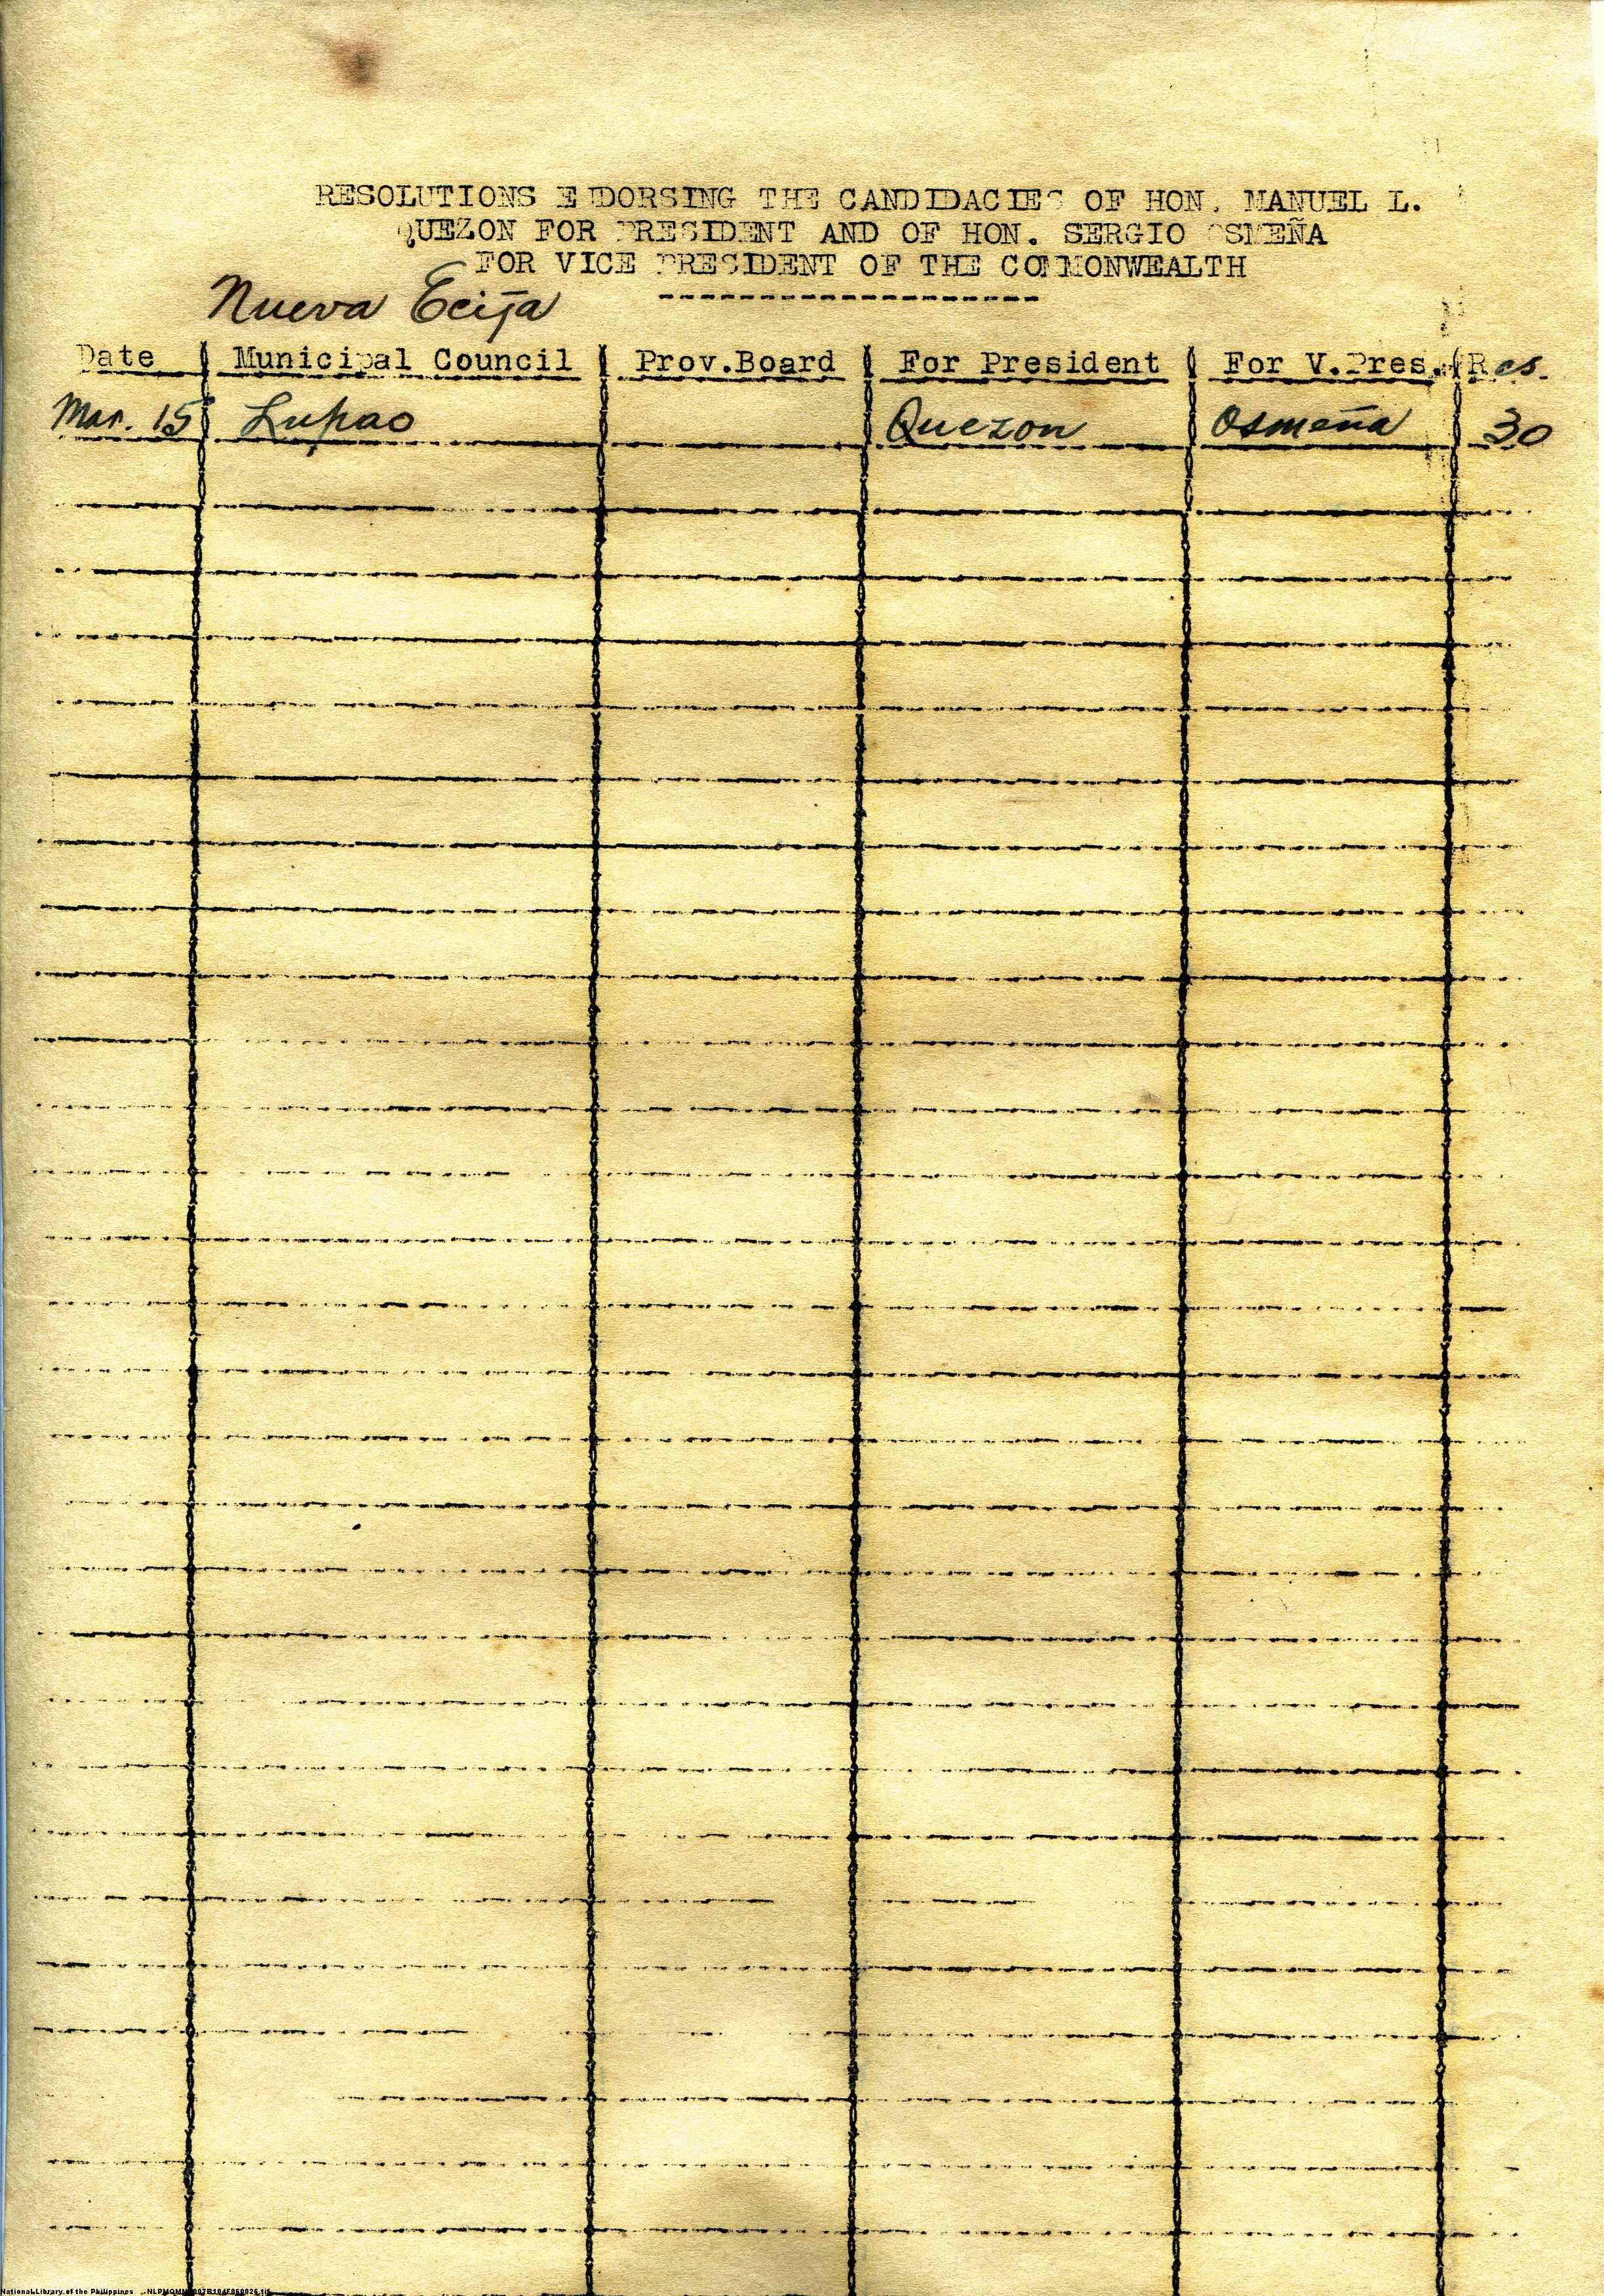 RESOLUTIONS ENDORSING THE CANDIDACIES OF HON. MANUEL L.
QUEZON FOR PRESIDENT AND OF HON. SERGIO OSMEÑA
FOR VICE PRESIDENT OF THE COMMONWEALTH
Nueva Ecija
Date | Municipal Council | Prov.Board | For President | For V.Pres. | Res.
Mar. 15 | Lupao | | Quezon | Osmeña | 30
National Library of the Philippines